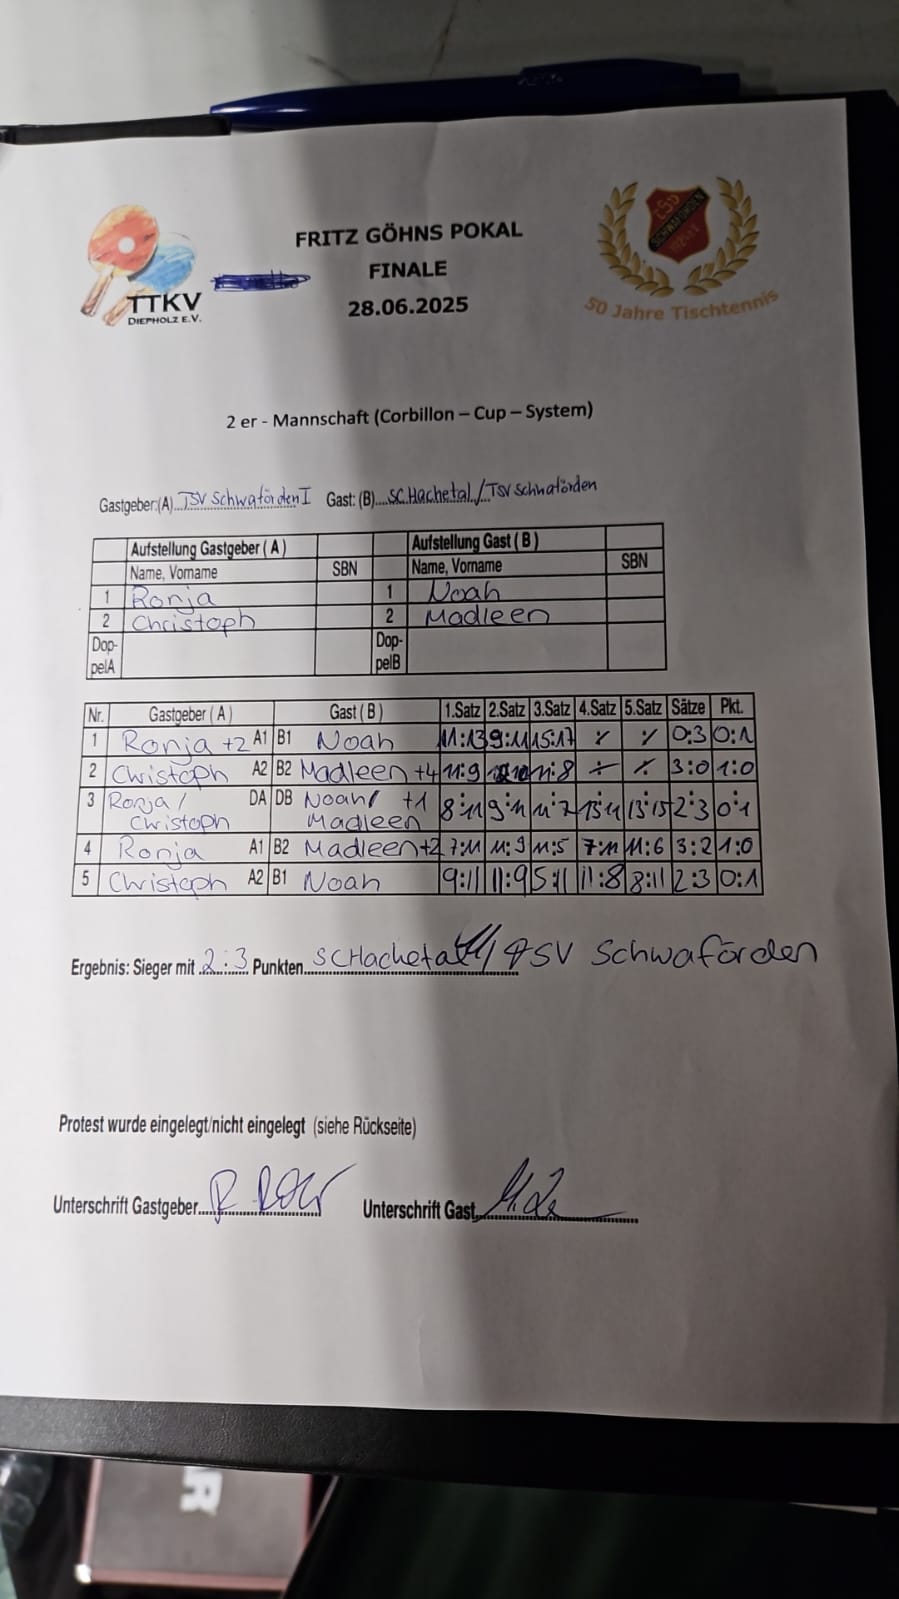 FRITZ GÖHNS POKAL
FINALE
28.06.2025
TTKV
DIEPHOLZ E.V.
TSV
SCHWAFÖRDEN
50 Jahre Tischtennis
2 er - Mannschaft (Corbillon – Cup – System)
Gastgeber:(A)...TSV Schwaförden I Gast: (B)....SC Hachetal / TSV Schwaförden
Aufstellung Gastgeber ( A ) Aufstellung Gast ( B )
Name, Vorname SBN Name, Vorname SBN
1 Ronja 1 Noah
2 Christoph 2 Madleen
Dop- Dop-
pelA pelB
Nr. Gastgeber ( A ) Gast ( B ) 1.Satz 2.Satz 3.Satz 4.Satz 5.Satz Sätze Pkt.
1 Ronja +2 A1 B1 Noah 11:13 9:11 15:17 ./. ./. 0:3 0:1
2 Christoph A2 B2 Madleen +4 11:9 11:8 ./. ./. 3:0 1:0
3 Ronja / DA DB Noah / +1 8:11 9:11 11:7 13:11 13:15 2:3 0:1
Christoph Madleen
4 Ronja A1 B2 Madleen +2 7:11 11:9 11:5 7:11 11:6 3:2 1:0
5 Christoph A2 B1 Noah 9:11 11:9 5:11 11:8 8:11 2:3 0:1
Ergebnis: Sieger mit 2:3 Punkten SC Hachetal / TSV Schwaförden
Protest wurde eingelegt/nicht eingelegt (siehe Rückseite)
Unterschrift Gastgeber Unterschrift Gast